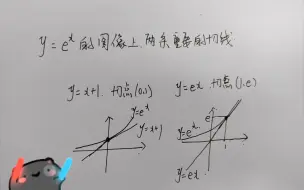 y=e^x 的图像上两条重要的切线
y=x+1 切点(0,1)
y=ex 切点(1,e)
y=e^x
y=x+1
e
y=e^x
1
y=ex